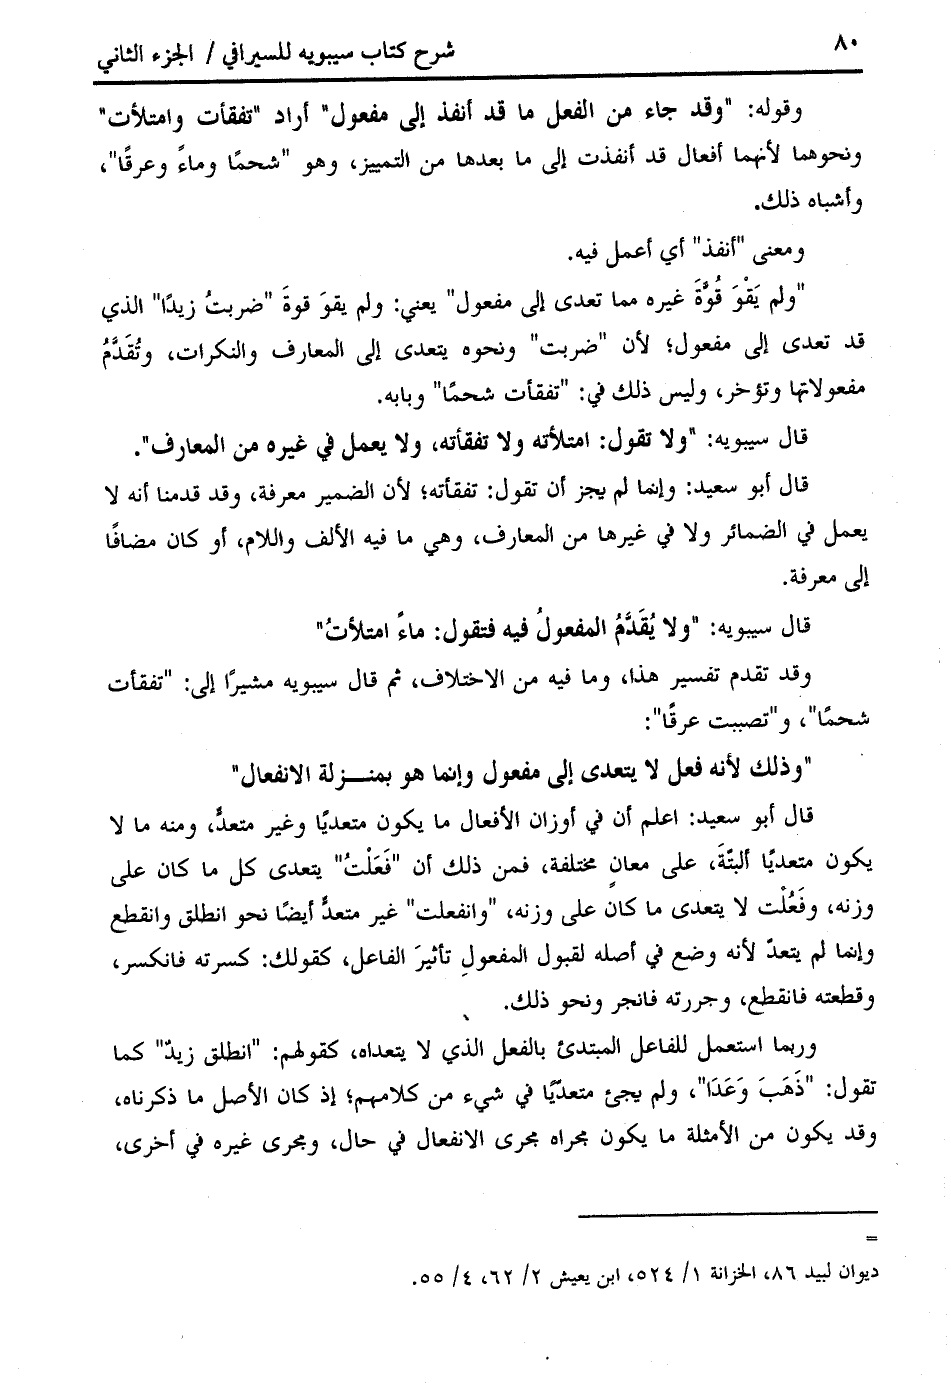 ٨٠
شرح كتاب سيبويه للسيرافي / الجزء الثاني
وقوله: "وقد جاء من الفعل ما قد أنفذ إلى مفعول" أراد "تفقأت وامتلأت"
ونحوهما لأنهما أفعال قد أنفذت إلى ما بعدها من التمييز، وهو "شحمًا وماءً وعرقًا"،
وأشباه ذلك.
ومعنى "أنفذ" أي أعمل فيه.
"ولم يَقْوَ قُوَّةَ غيره مما تعدى إلى مفعول" يعني: ولم يقوَ قوةَ "ضربتُ زيدًا" الذي
قد تعدى إلى مفعول؛ لأن "ضربت" ونحوه يتعدى إلى المعارف والنكرات، وتُقَدَّمُ
مفعولاتها وتؤخر، وليس ذلك في: "تفقأت شحمًا" وبابه.
قال سيبويه: "ولا تقول: امتلأته ولا تفقأته، ولا يعمل في غيره من المعارف".
قال أبو سعيد: وإنما لم يجز أن تقول: تفقأته؛ لأن الضمير معرفة، وقد قدمنا أنه لا
يعمل في الضمائر ولا في غيرها من المعارف، وهي ما فيه الألف واللام، أو كان مضافًا
إلى معرفة.
قال سيبويه: "ولا يُقَدَّمُ المفعولُ فيه فتقول: ماءً امتلأتُ"
وقد تقدم تفسير هذا، وما فيه من الاختلاف، ثم قال سيبويه مشيرًا إلى: "تفقأت
شحمًا"، و"تصببت عرقًا":
"وذلك لأنه فعل لا يتعدى إلى مفعول وإنما هو بمنـــزلة الانفعال"
قال أبو سعيد: اعلم أن في أوزان الأفعال ما يكون متعديًا وغير متعدٍّ، ومنه ما لا
يكون متعديًا ألبتّةَ، على معانٍ مختلفة، فمن ذلك أن "فَعَلْتُ" يتعدى كل ما كان على
وزنه، وفَعُلْت لا يتعدى ما كان على وزنه، "وانفعلت" غير متعدٍّ أيضًا نحو انطلق وانقطع
وإنما لم يتعدّ لأنه وضع في أصله لقبول المفعولِ تأثيرَ الفاعل، كقولك: كسرته فانكسر،
وقطعته فانقطع، وجررته فانجر ونحو ذلك.
وربما استعمل للفاعل المبتدئ بالفعل الذي لا يتعداه، كقولهم: "انطلق زيدٌ" كما
تقول: "ذَهَبَ وَعَدَا"، ولم يجئ متعديًا في شيء من كلامهم؛ إذ كان الأصل ما ذكرناه،
وقد يكون من الأمثلة ما يكون مجراه مجرى الانفعال في حال، ومجرى غيره في أخرى،
=
ديوان لبيد ٨٦، الخزانة ١/ ٥٢٤، ابن يعيش ٢/ ٦٢، ٤/ ٥٥.